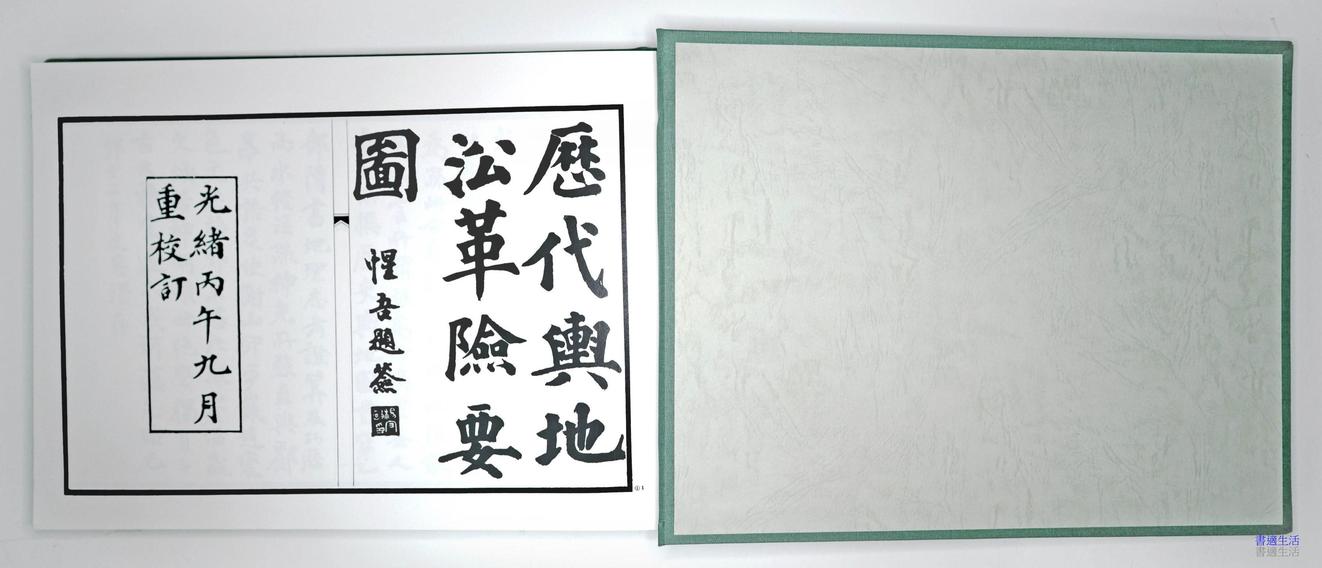 歷代輿地
沿革險要
圖
惺吾題簽
光緒丙午九月
重校訂
書適生活